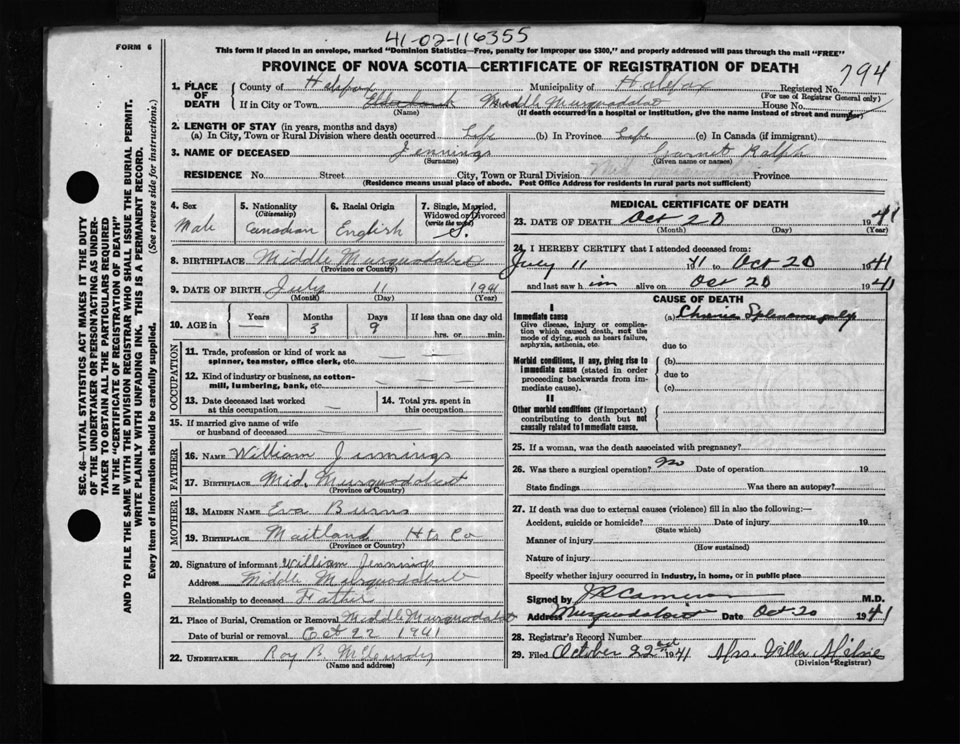 41-02-116355
FORM 6
This form if placed in an envelope, marked "Dominion Statistics—Free, penalty for improper use $300," and properly addressed will pass through the mail "FREE"
PROVINCE OF NOVA SCOTIA—CERTIFICATE OF REGISTRATION OF DEATH
794
1. PLACE OF DEATH County of Halifax Municipality of Halifax Registered No.
(For use of Registrar General only)
If in City or Town Middle Musquodoboit House No.
(Name) (If death occurred in a hospital or institution, give the name instead of street and number)
2. LENGTH OF STAY (in years, months and days)
(a) In City, Town or Rural Division where death occurred Life (b) In Province Life (c) In Canada (if immigrant)
3. NAME OF DECEASED Jennings Garnet Ralph
(Surname) (Given name or names)
RESIDENCE No. Street City, Town or Rural Division Mid. Musquodoboit Province
(Residence means usual place of abode. Post Office Address for residents in rural parts not sufficient)
4. Sex Male
5. Nationality (Citizenship) Canadian
6. Racial Origin English
7. Single, Married, Widowed or Divorced (write the word) S.
8. BIRTHPLACE Middle Musquodoboit
(Province or Country)
9. DATE OF BIRTH July 11 1941
(Month) (Day) (Year)
10. AGE in Years Months 3 Days 9 If less than one day old hrs. or min.
OCCUPATION
11. Trade, profession or kind of work as spinner, teamster, office clerk, etc.
12. Kind of industry or business, as cotton-mill, lumbering, bank, etc.
13. Date deceased last worked at this occupation
14. Total yrs. spent in this occupation
15. If married give name of wife or husband of deceased
FATHER
16. Name William Jennings
17. BIRTHPLACE Mid. Musquodoboit
(Province or Country)
MOTHER
18. MAIDEN NAME Eva Burns
19. BIRTHPLACE Maitland Hts Co
(Province or Country)
20. Signature of informant William Jennings
Address Middle Musquodoboit
Relationship to deceased Father
21. Place of Burial, Cremation or Removal Middle Musquodoboit
Date of burial or removal Oct 22 1941
22. UNDERTAKER Roy B. McCurdy
(Name and address)
MEDICAL CERTIFICATE OF DEATH
23. DATE OF DEATH Oct 20 1941
(Month) (Day) (Year)
24. I HEREBY CERTIFY that I attended deceased from:
July 11 41 to Oct 20 1941
and last saw him alive on Oct 20 1941
CAUSE OF DEATH
I
Immediate cause (a)
Give disease, injury or complication which caused death, not the mode of dying, such as heart failure, asphyxia, asthenia, etc.
due to
Morbid conditions, if any, giving rise to immediate cause (stated in order proceeding backwards from immediate cause).
(b)
due to
(c)
II
Other morbid conditions (if important) contributing to death but not causally related to immediate cause.
25. If a woman, was the death associated with pregnancy?
26. Was there a surgical operation? No Date of operation 19
State findings Was there an autopsy?
27. If death was due to external causes (violence) fill in also the following:—
Accident, suicide or homicide? Date of injury 19
(State which)
Manner of injury
(How sustained)
Nature of injury
Specify whether injury occurred in industry, in home, or in public place
Signed by J R Cameron M.D.
Address Musquodoboit Date Oct 20 1941
28. Registrar's Record Number
29. Filed October 22nd 1941 Mrs. Villa
(Division Registrar)
SEC. 46—VITAL STATISTICS ACT MAKES IT THE DUTY
OF THE UNDERTAKER OR PERSON ACTING AS UNDER-
TAKER TO OBTAIN ALL THE PARTICULARS REQUIRED
IN THE "CERTIFICATE OF REGISTRATION OF DEATH"
AND TO FILE THE SAME WITH THE DIVISION REGISTRAR WHO SHALL ISSUE THE BURIAL PERMIT.
WRITE PLAINLY WITH UNFADING INK. THIS IS A PERMANENT RECORD.
Every item of information should be carefully supplied. (See reverse side for instructions.)